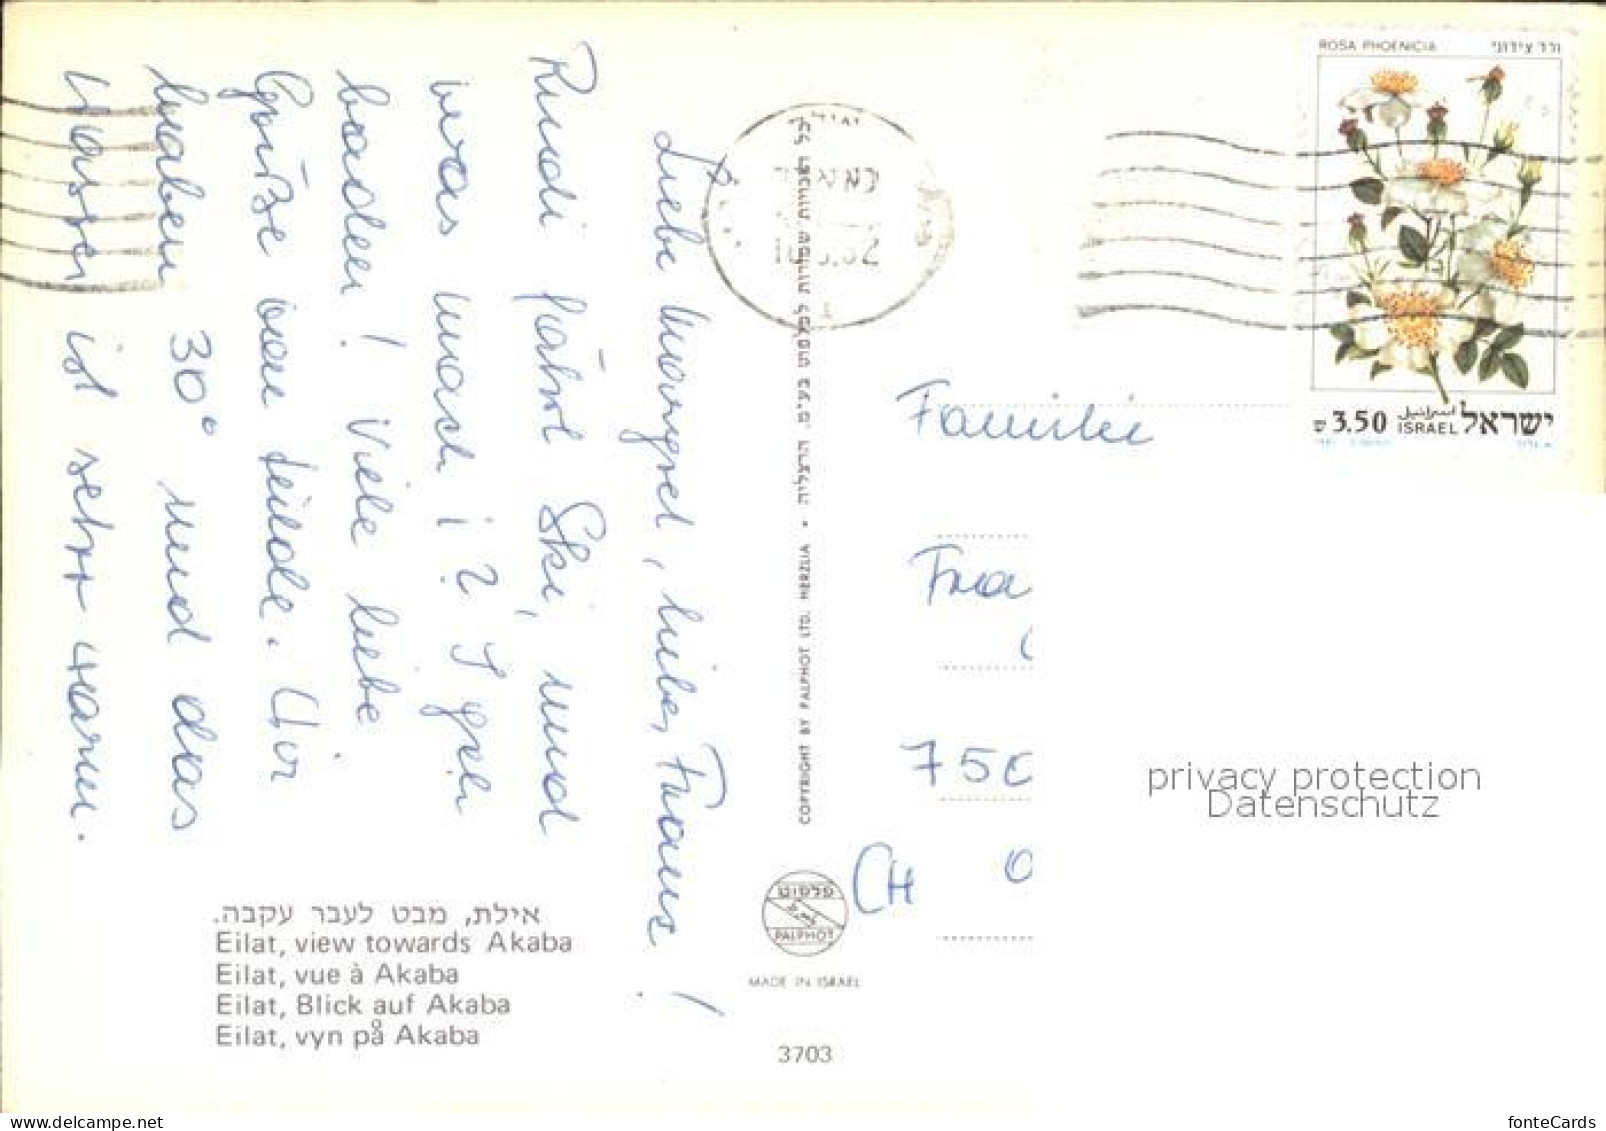 Liebe Margret, lieber Franz!
Rudi fährt Ski, und
was mach i? I geh
baden! Viele liebe
Grüße von Linde. Wir
haben 30° und das
Wasser ist sehr warm.
אילת, מבט לעבר עקבה.
Eilat, view towards Akaba
Eilat, vue à Akaba
Eilat, Blick auf Akaba
Eilat, vyn på Akaba
כל הזכויות שמורות לפלפוט בע"מ. הרצליה • COPYRIGHT BY PALPHOT LTD. HERZLIA
פלפוט
PALPHOT
MADE IN ISRAEL
3703
ROSA PHOENICIA ורד צידוני
3.50 ISRAEL ישראל
اسرائيل
Familie
Fra
750
CH
privacy protection
Datenschutz
fonteCards